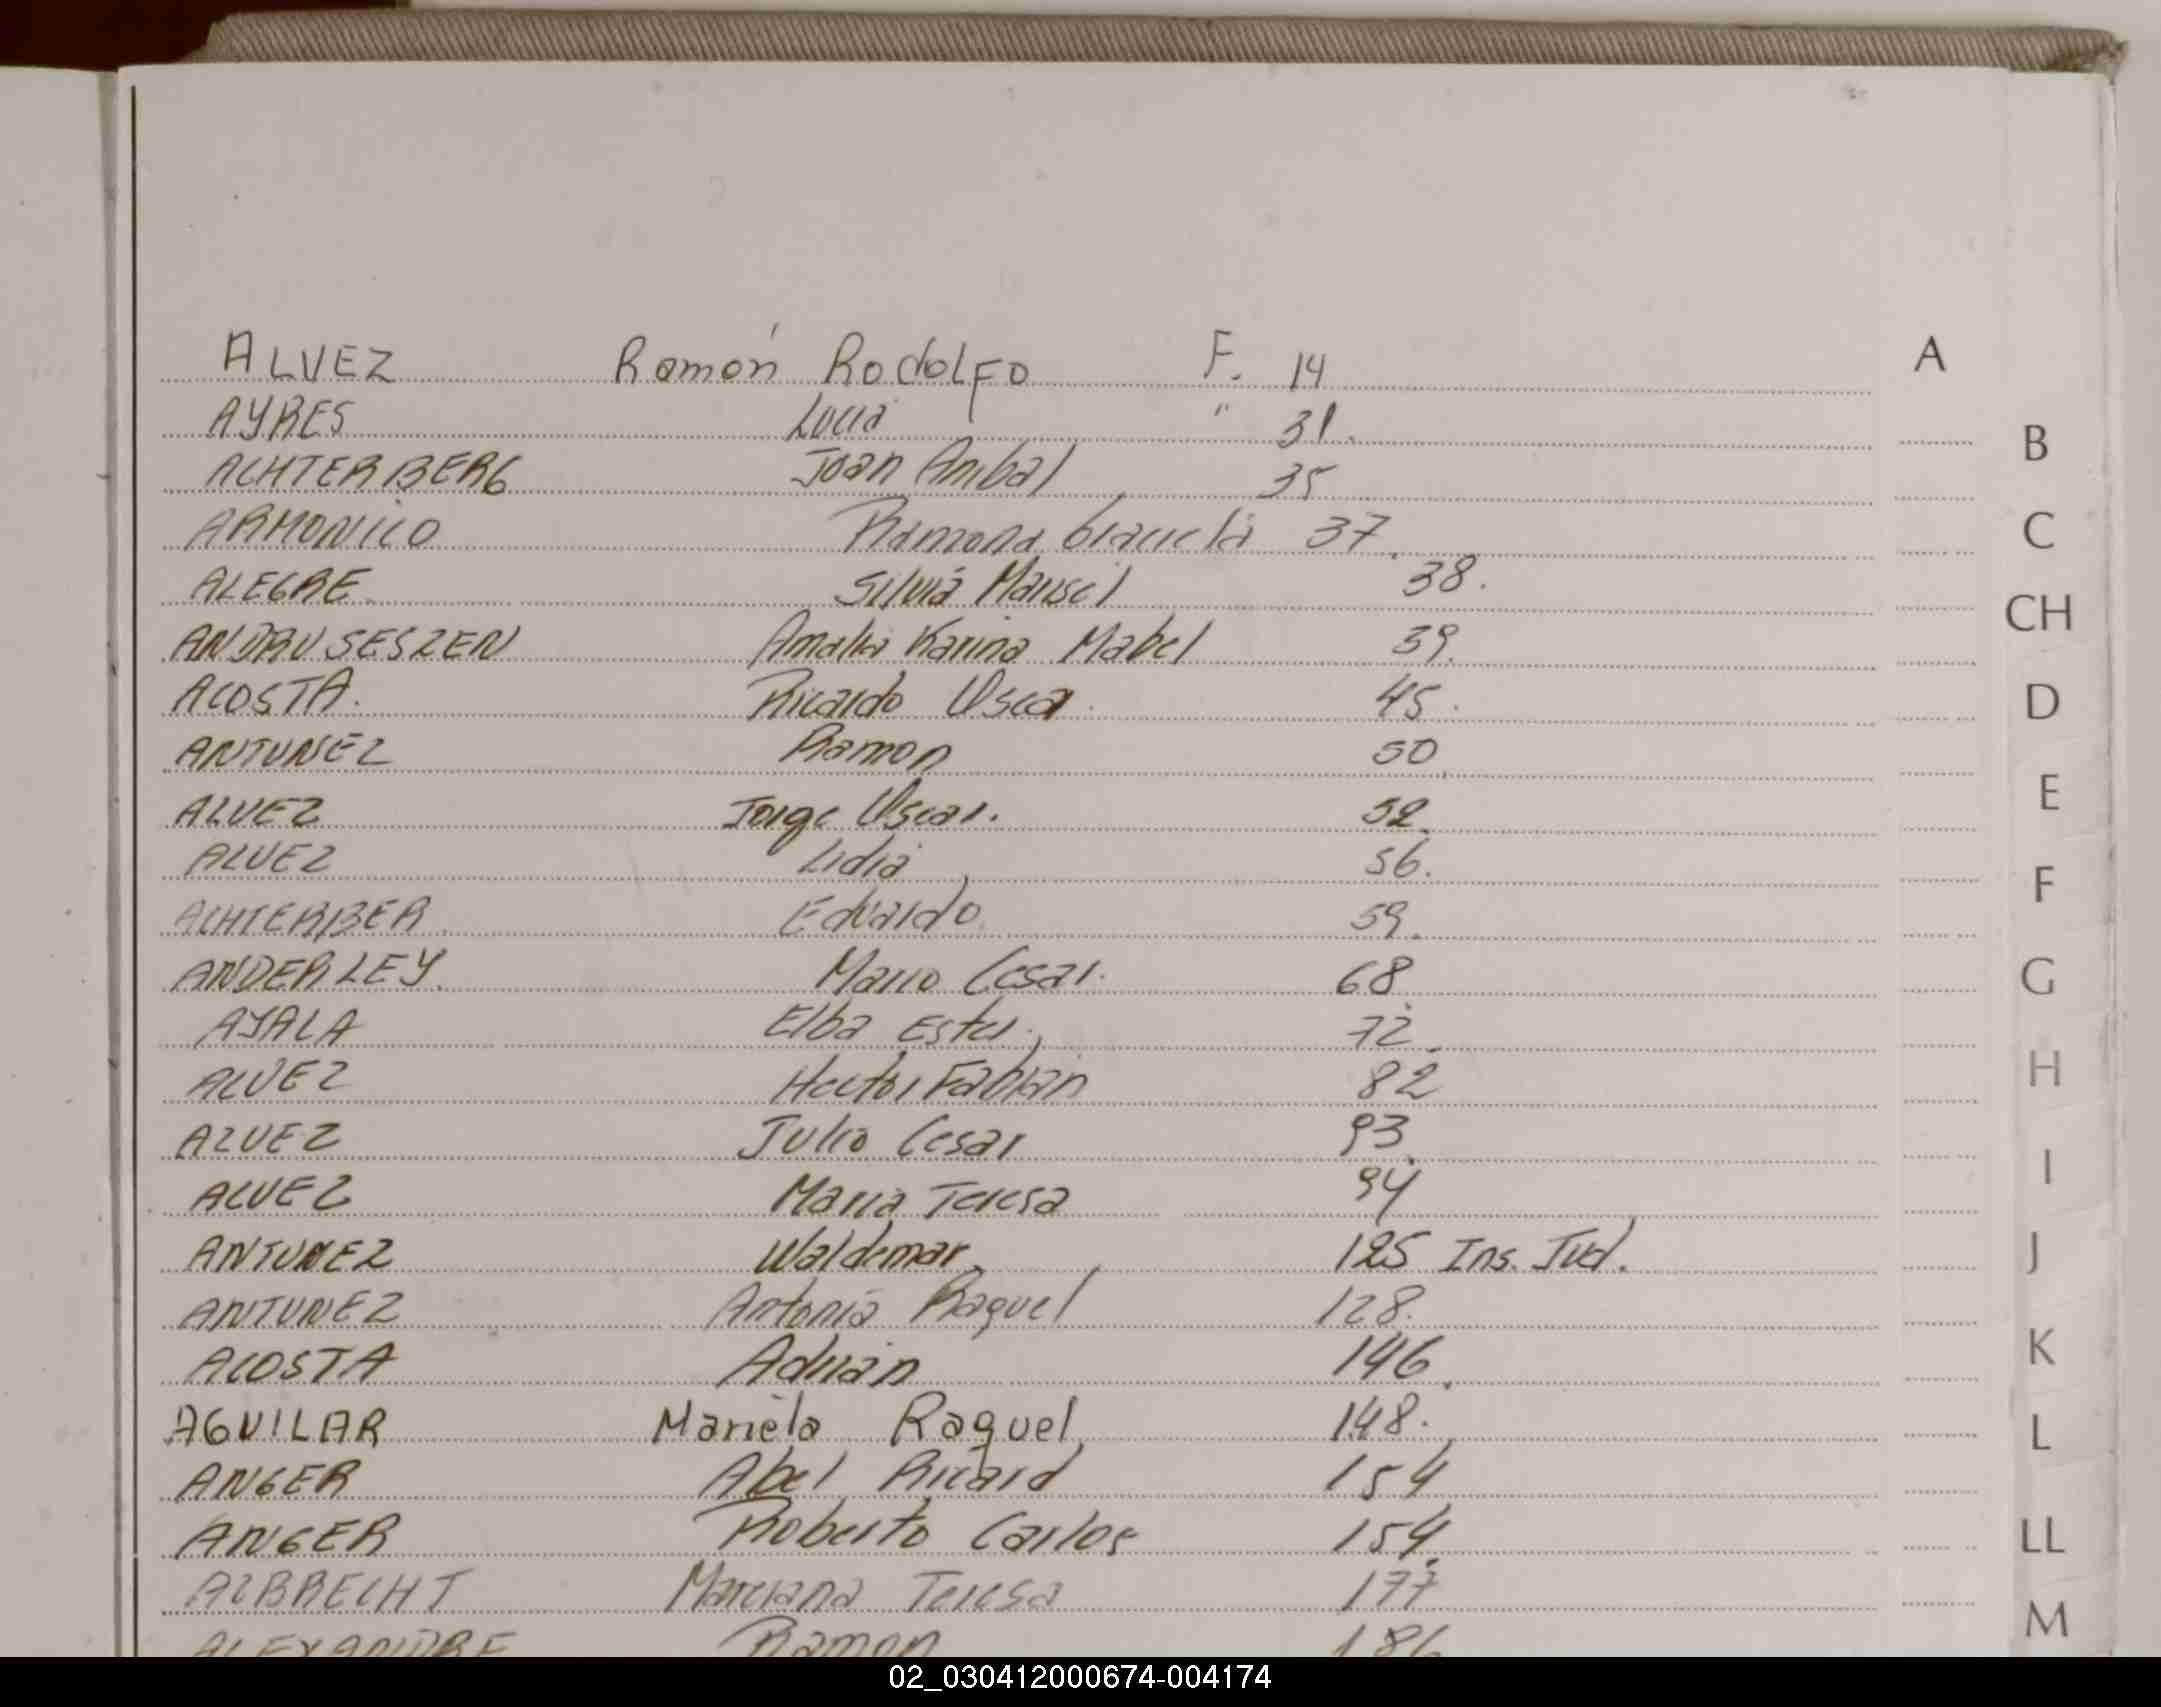 ALVEZ Ramón Rodolfo F. 14
A
AYRES Lucia " 31.
B
ACHTERBERG Juan Anibal 35
ARMONICO Ramona Graciela 37.
C
ALEGRE Silvia Marisel 38.
CH
ANDRUSESZEN Amalia Karina Mabel 39.
ACOSTA. Ricardo Oscar 45.
D
ANTUNEZ Ramon 50
E
ALVEZ Jorge Oscar. 52.
ALVEZ Lidia 56.
F
ACHTERBER Eduardo 59.
ANDERLEY. Mario Cesar. 68
G
AYALA Elba Ester. 72
ALVEZ Hector Fabian 82
H
ALVEZ Julio Cesar 93
I
ALVEZ Maria Teresa 94
ANTUNEZ Waldemar 125 Ins. Jud.
J
ANTUNEZ Antonia Raquel 128.
K
ACOSTA Adrián 146.
AGUILAR Mariela Raquel 148.
L
ANGER Abel Ricard 154
ANGER Roberto Carlos 154.
LL
ALBRECHT Marciana Teresa 177
M
ALEXANDRE Ramon 186
02_030412000674-004174